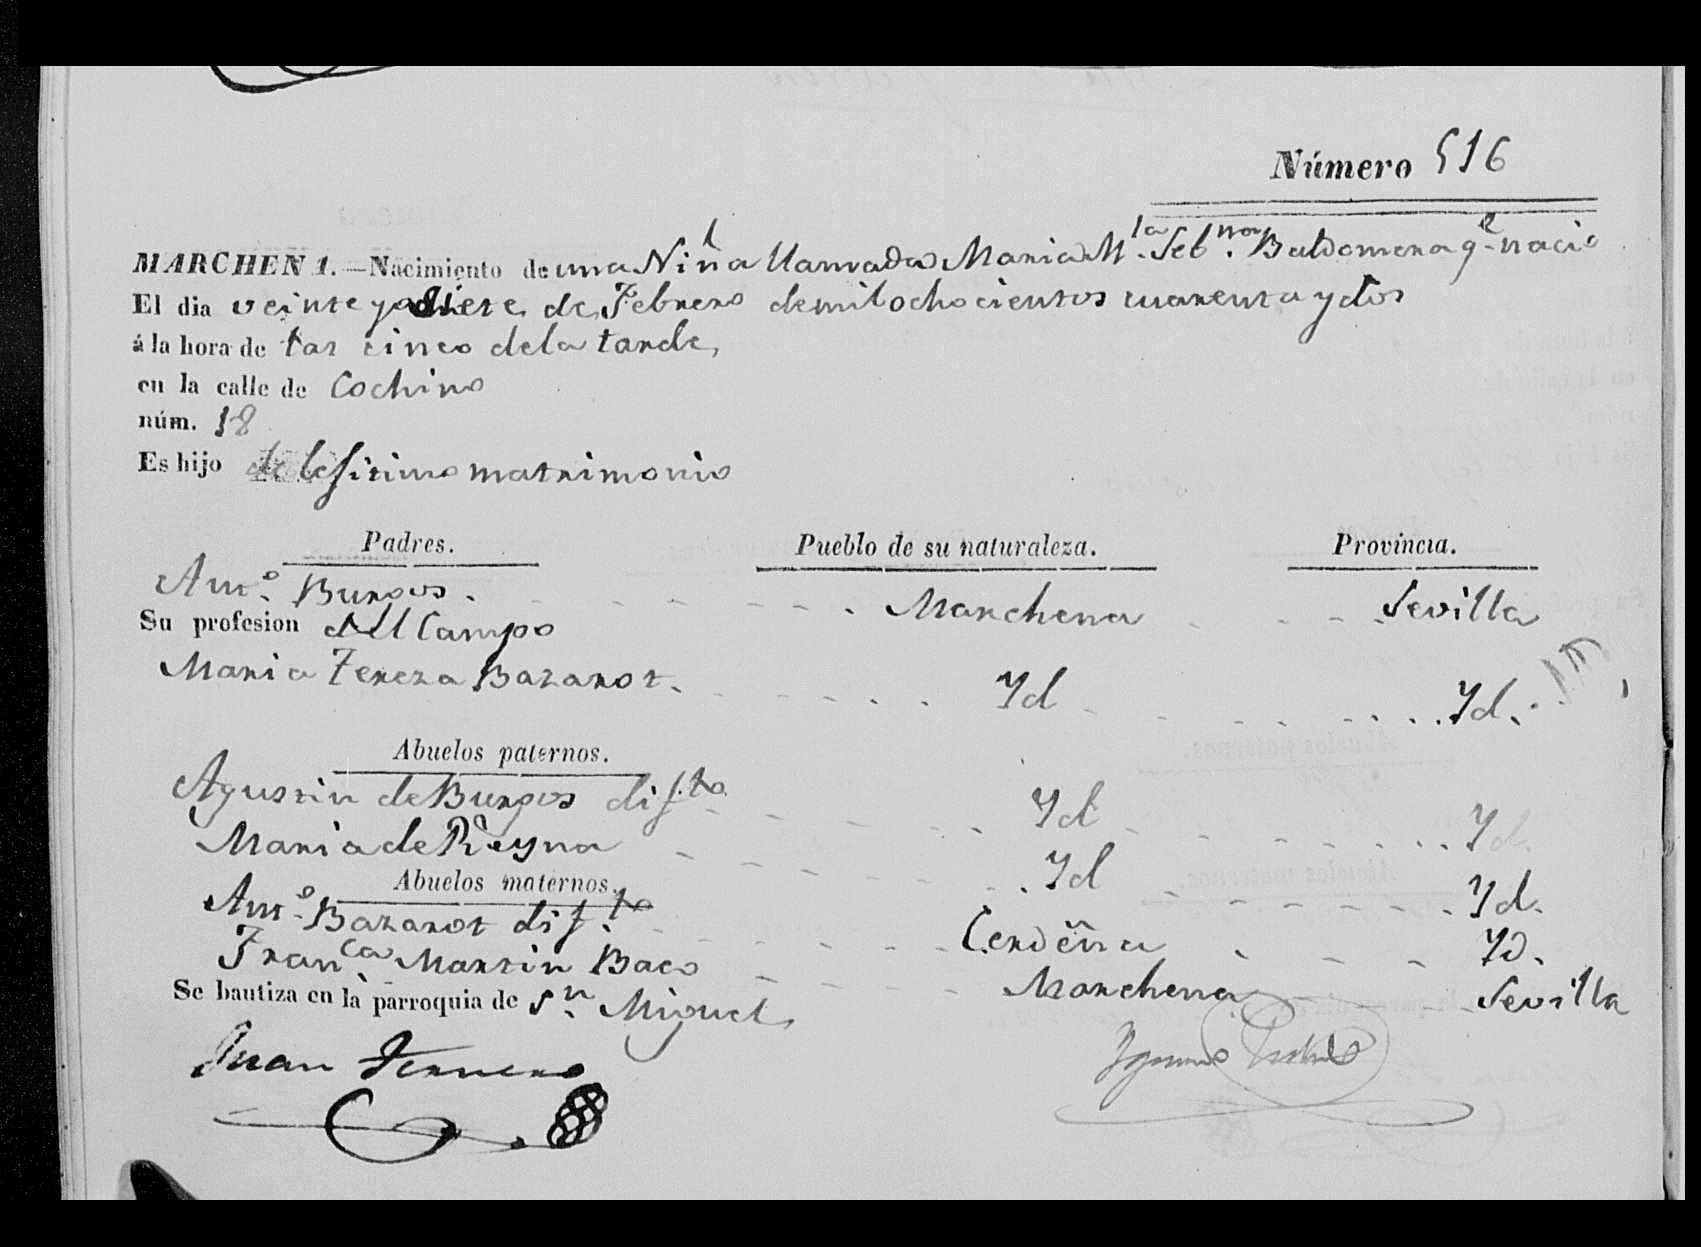 Número 516
MARCHENA.—Nacimiento de una Niña llamada Maria M.la Seb.na Baldomera q.e nacio
El dia veinte y siete de Febrero de mil ochocientos cuarenta y dos
á la hora de las cinco de la tarde,
en la calle de Cochino
núm. 18
Es hijo de lejitimo matrimonio
Padres. Pueblo de su naturaleza. Provincia.
Ant.o Burgos. Marchena Sevilla
Su profesion del Campo
Maria Tereza Bazarot. Yd Yd.
Abuelos paternos.
Agustin de Burgos dif.to Yd Yd.
Maria de Reyna Yd Yd.
Abuelos maternos.
Ant.o Bazarot dif.to Cerdeña Yd.
Fran.ca Martin Baco Marchena Sevilla
Se bautiza en la parroquia de S.n Miguel
Juan Ferrero